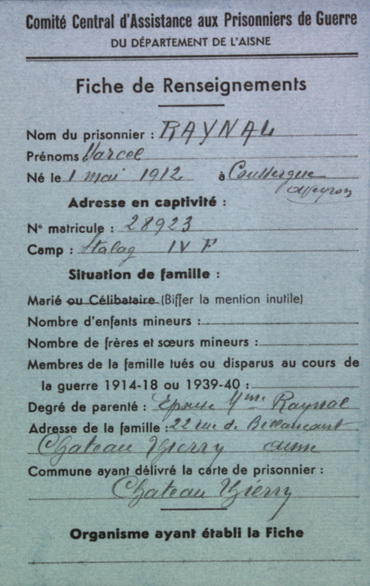 Comité Central d'Assistance aux Prisonniers de Guerre
DU DÉPARTEMENT DE L'AISNE
Fiche de Renseignements
Nom du prisonnier : RAYNAL
Prénoms Marcel
Né le 1 mai 1912 à Coussergue
Aveyron
Adresse en captivité :
N° matricule : 28923
Camp : Stalag IV F
Situation de famille :
Marié ou Célibataire (Biffer la mention inutile)
Nombre d'enfants mineurs :
Nombre de frères et sœurs mineurs :
Membres de la famille tués ou disparus au cours de
la guerre 1914-18 ou 1939-40 :
Degré de parenté : Epouse Mme Raynal
Adresse de la famille : 22 rue de
Chateau Thierry Aisne
Commune ayant délivré la carte de prisonnier :
Chateau Thierry
Organisme ayant établi la Fiche